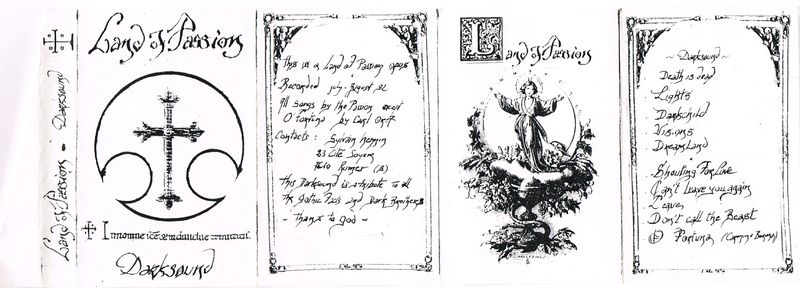 Land of Passion • Darksound
Land of Passion
Darksound
This is a Land of Passion opus
Recorded July-August 92
All songs by the Passion except
O Fortuna by Carl Orff
Contacts :
Sylvain
33 Cité
(B)
This Darksound is a tribute to all
the Gothic and Dark
~ Thanx to god ~
Land of Passion
~ Darksound ~
Death is dead
Lights
Darkschild
Visions
DreamLand
Shouting For Love
I can't leave you again
Leave
Don't call the Beast
Fortuna (Carmina Burana)